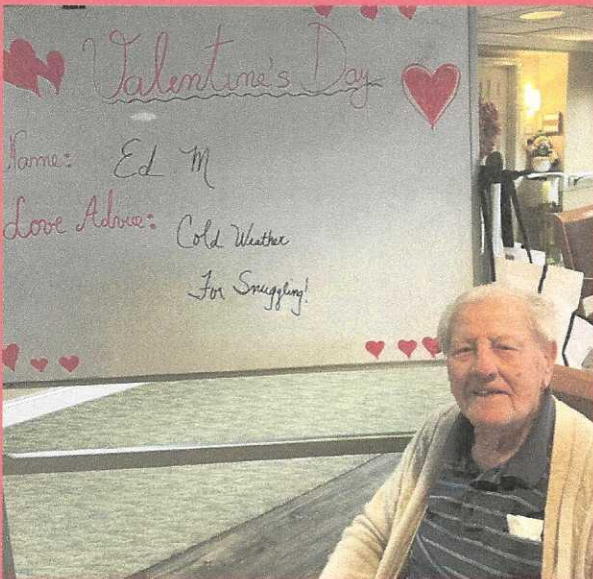 Valentine's Day
Name: Ed M
Love Advice: Cold Weather
For Snuggling!